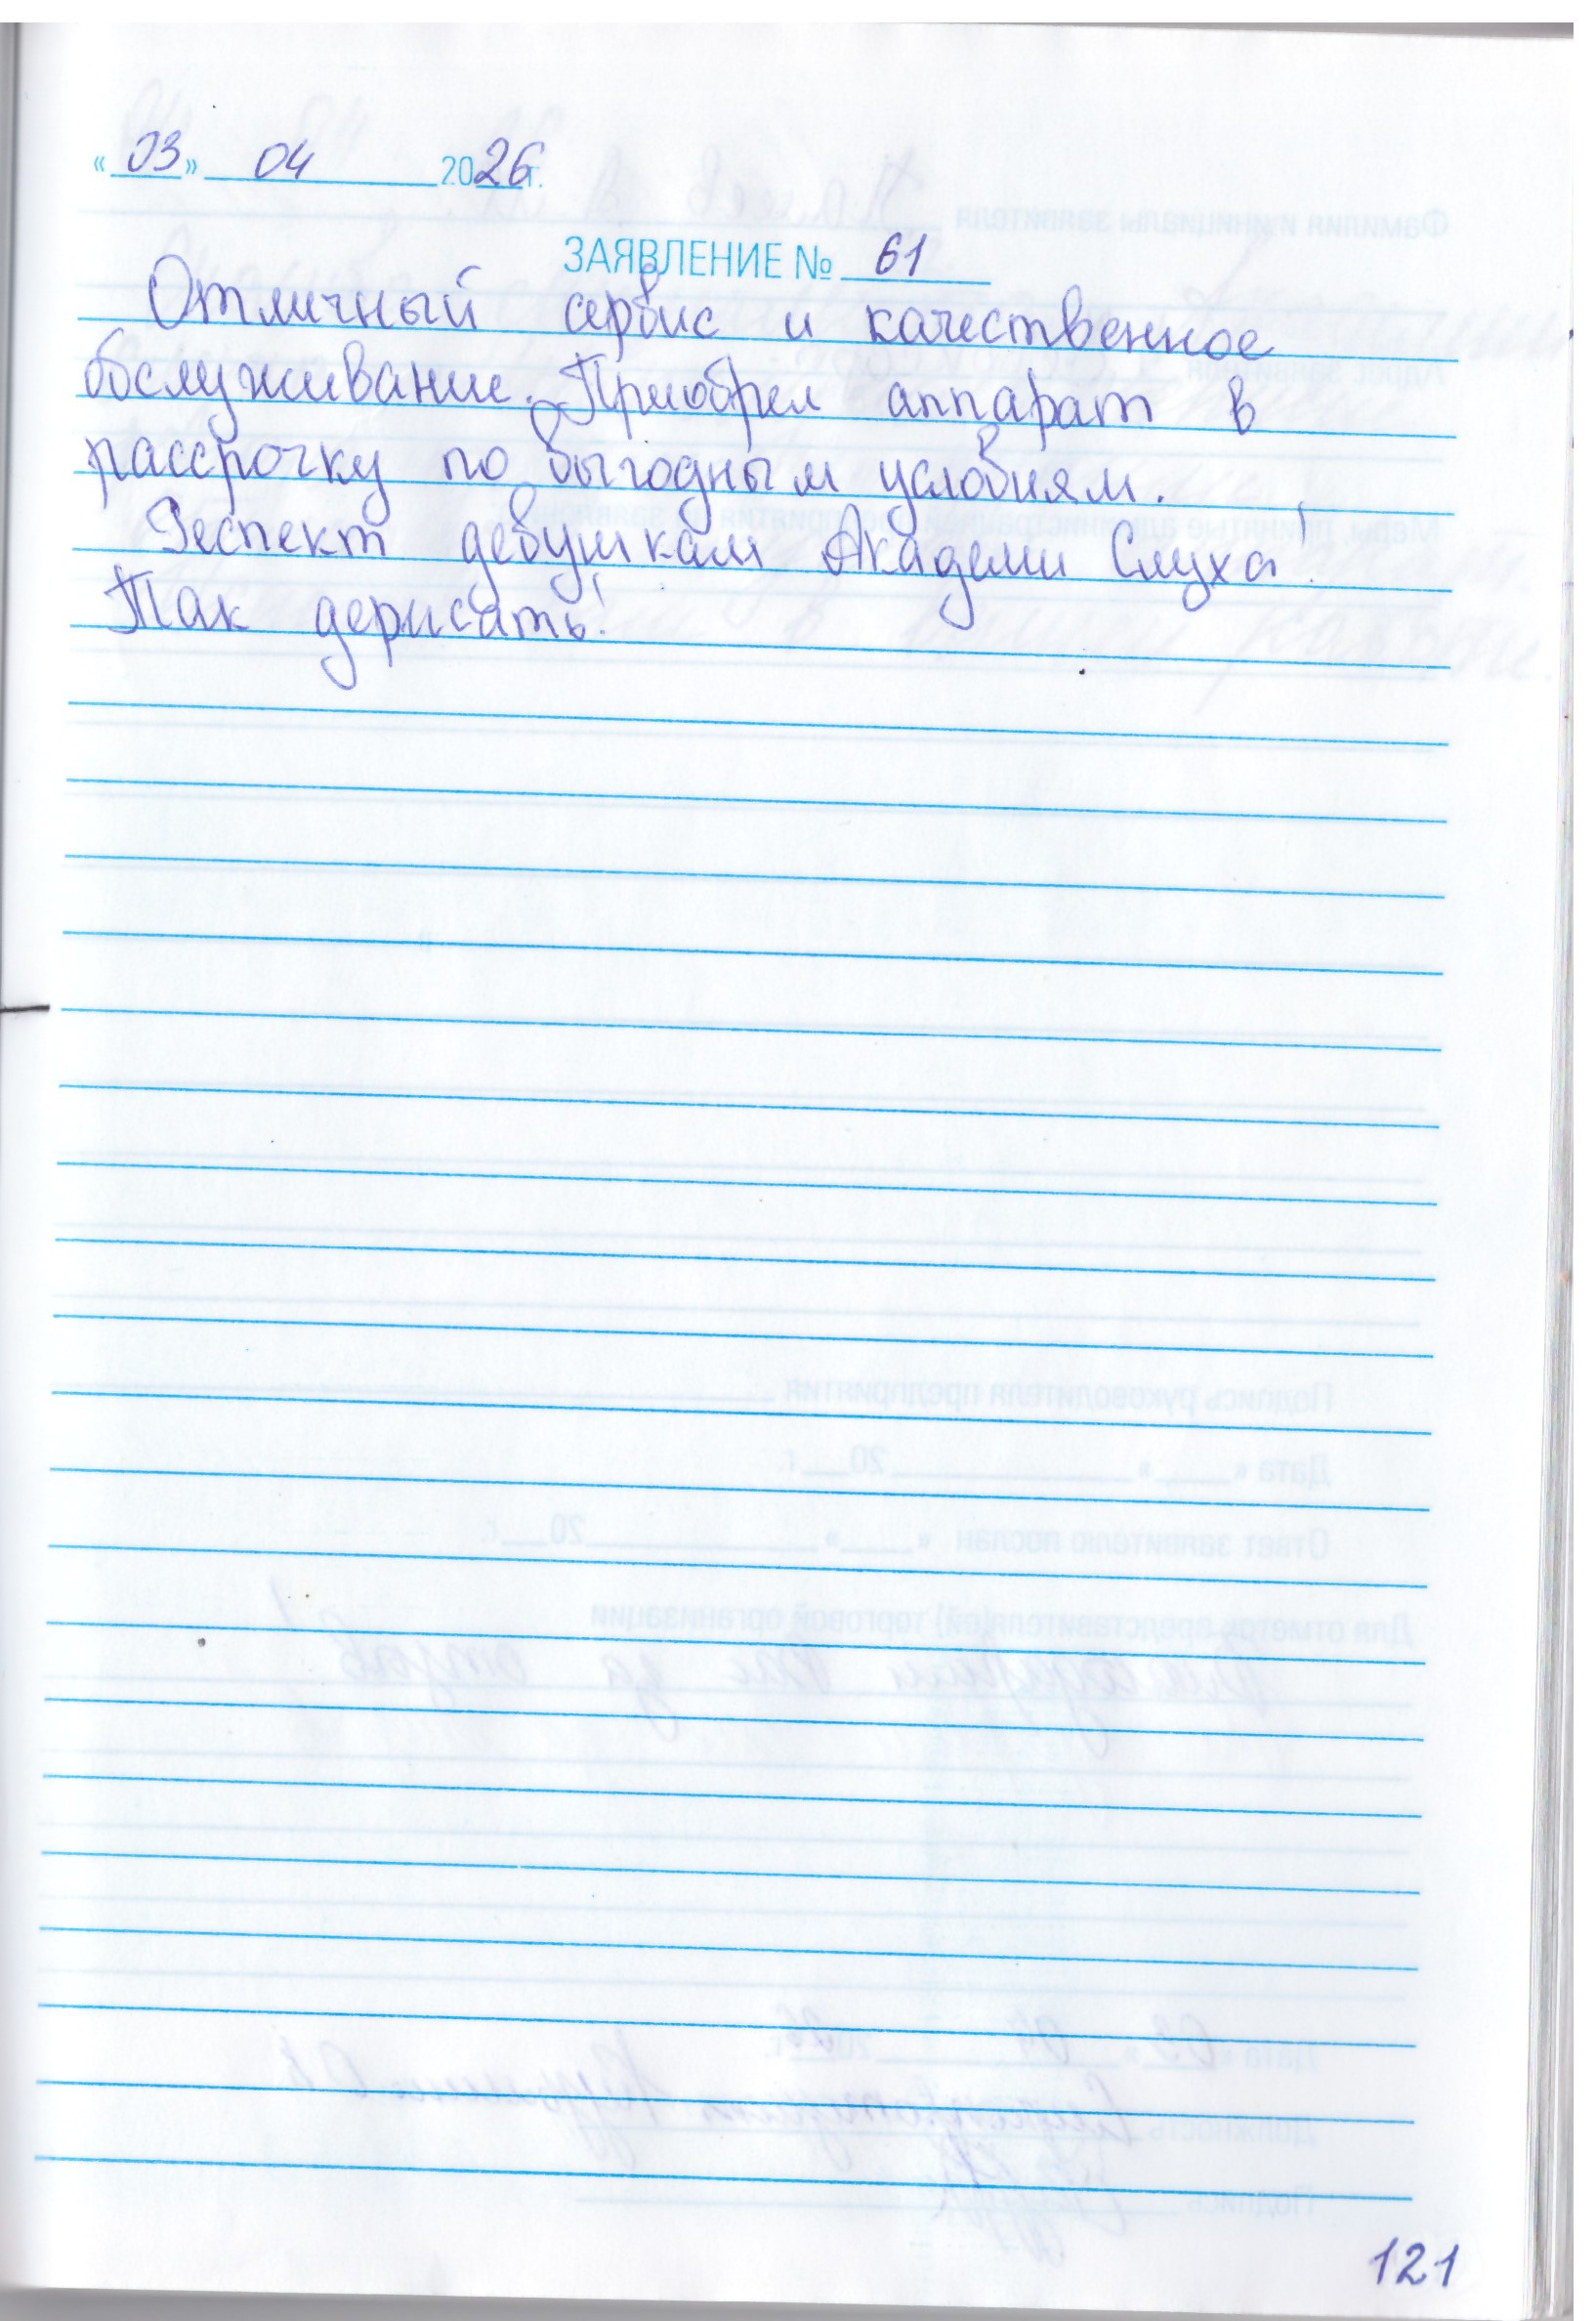 «03» 04 2026г.
ЗАЯВЛЕНИЕ № 61
Отличный сервис и качественное
обслуживание. Приобрел аппарат в
рассрочку по выгодным условиям.
Респект девушкам Академи Слуха!
Так держать!
121